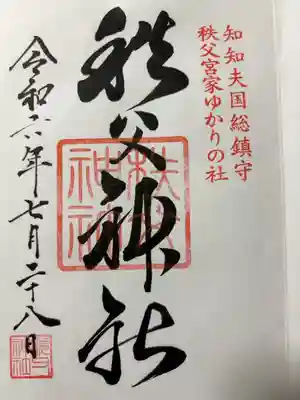 知知夫国総鎮守
秩父宮家ゆかりの社
秩父神社
秩父神社
令和六年七月二十八日